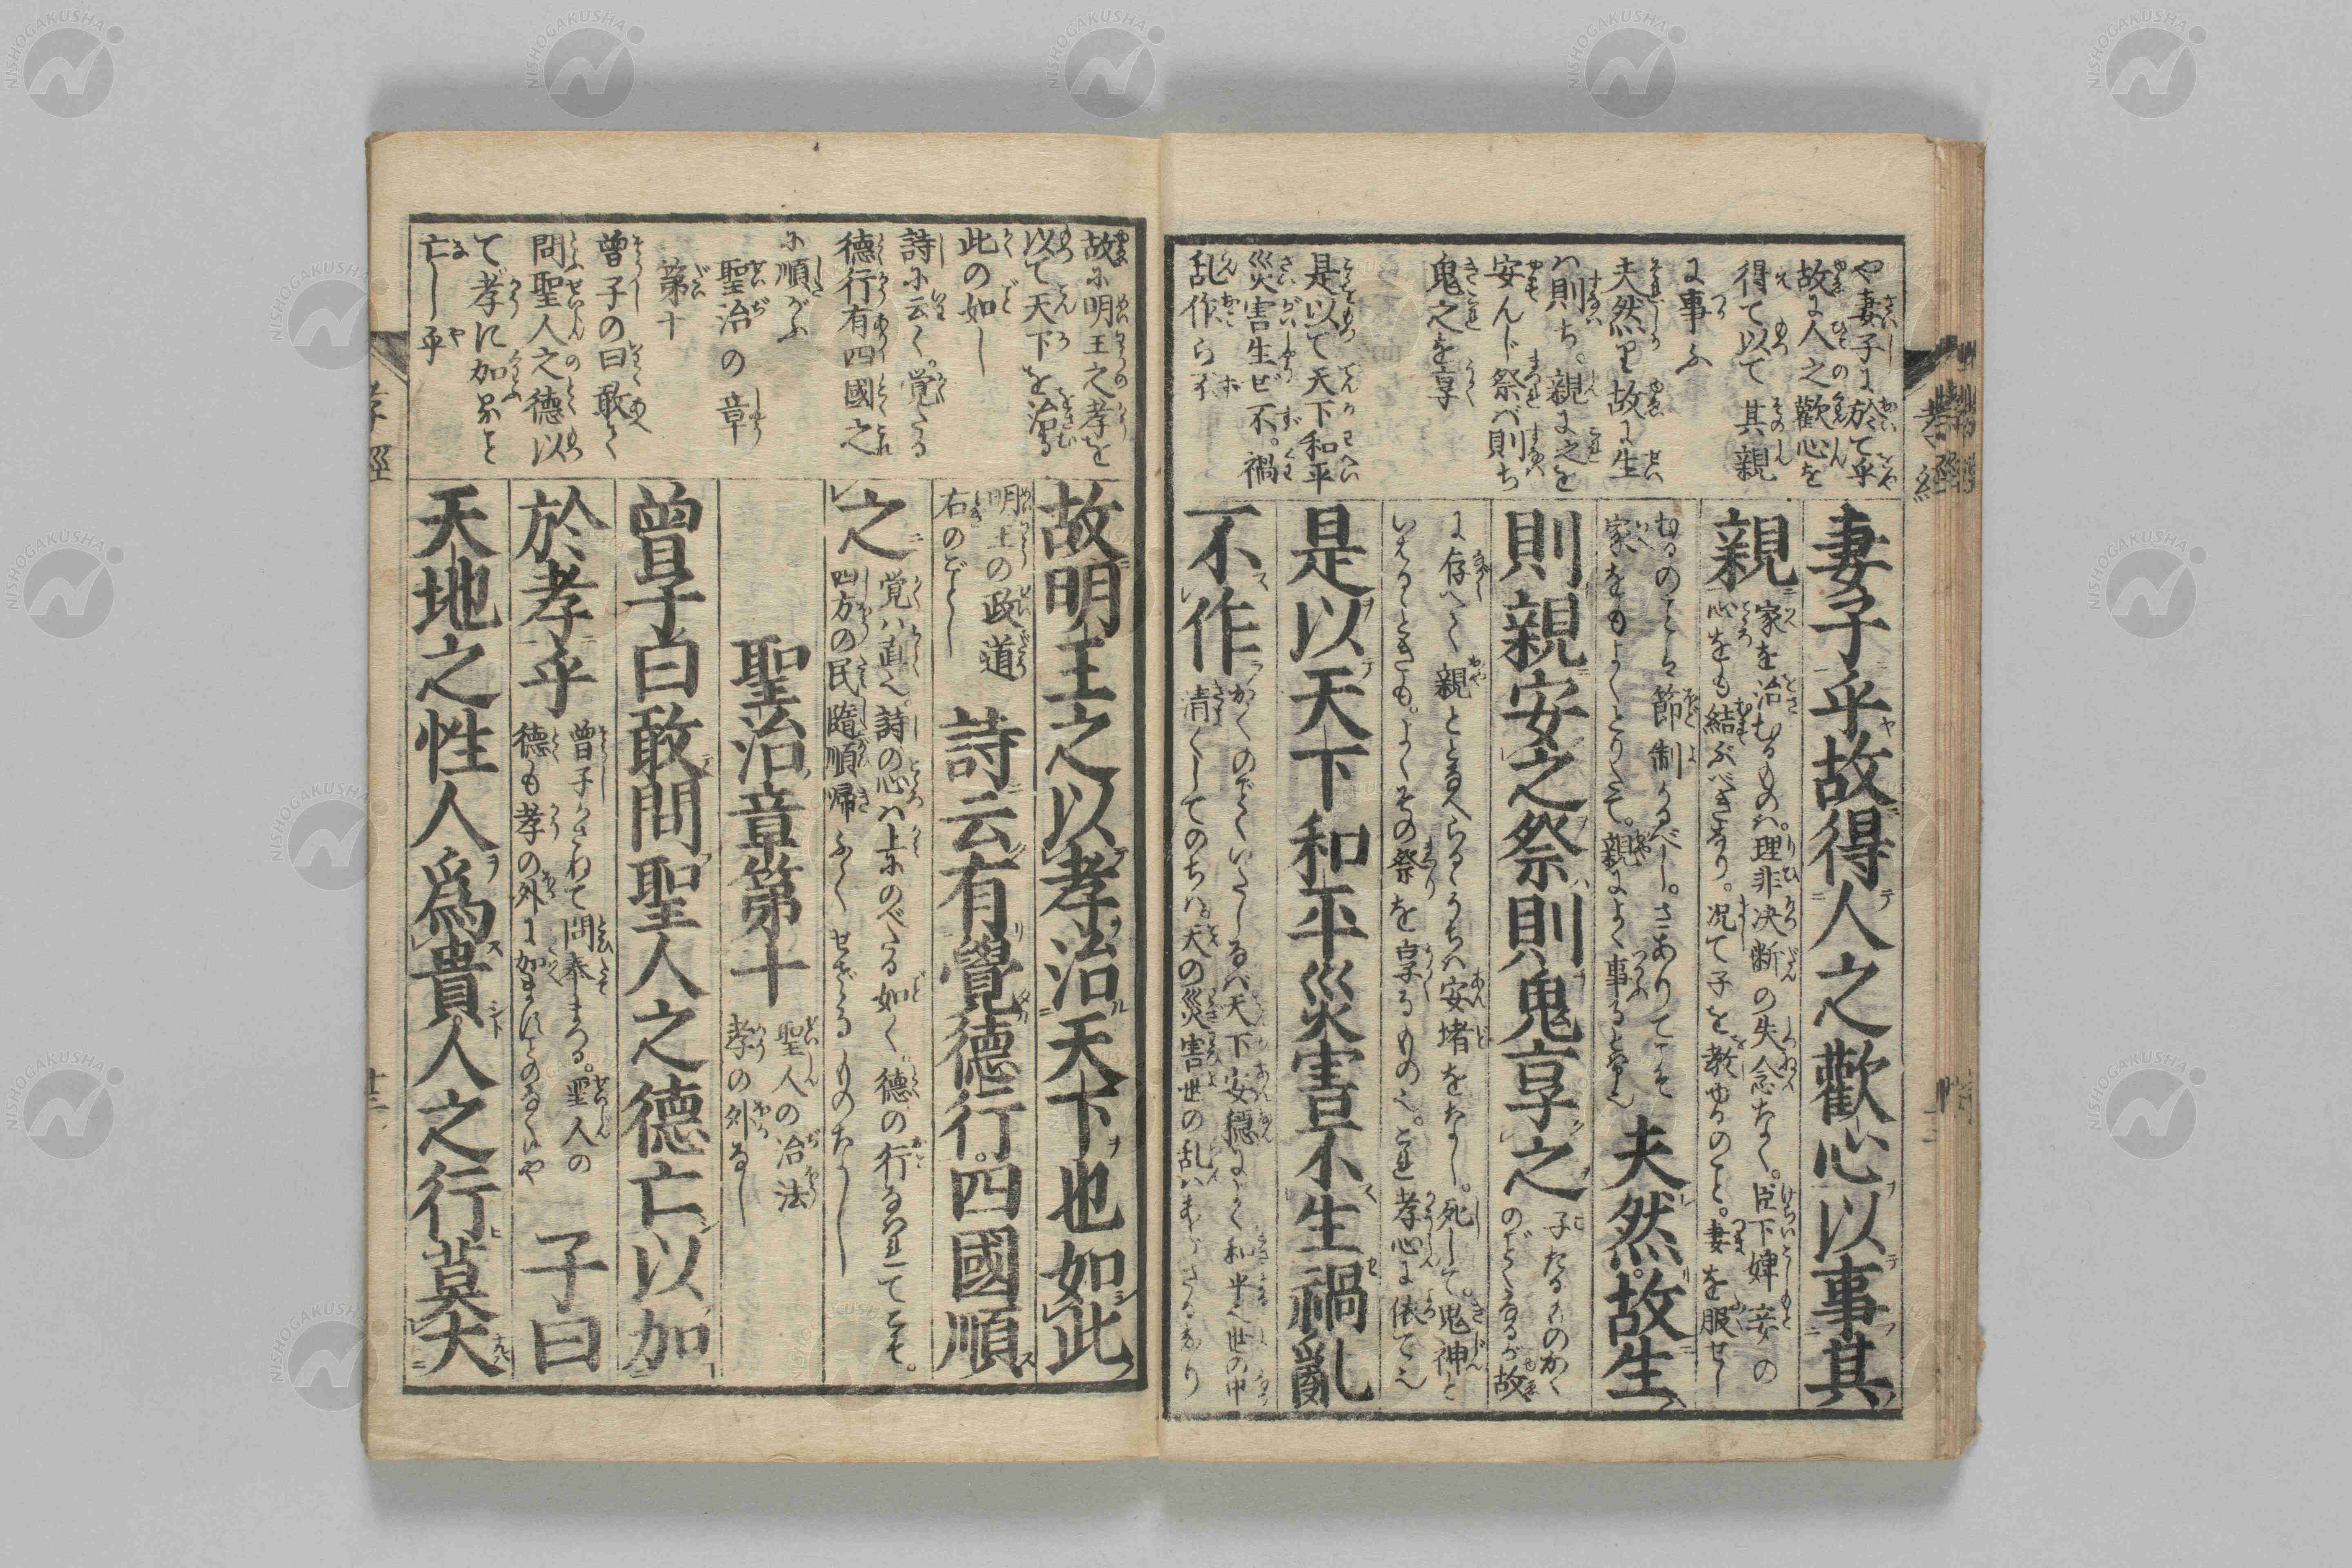 や妻子に於て乎
故に人之歡心を
得て以て其親
に事ふ
夫然り故に生
ハ則ち親に之を
安んじ祭バ則ち
鬼之を享
是以て天下和平
災害生ぜ不禍
乱作らず
妻子乎故得人之歡心以事其
親
家を治むるものハ理非决断の失念なく。臣下婢妾の
心をも結ぶべきなり。况て子を教ゆるのこと。妻を服せし
むるのことは節制あるべし。さありてこそ
家をもよくとりたて。親によく事るとなん
夫然故生
則親安之祭則鬼享之
子たるものかく
のごとくなるが故
に存へく親ととなへらるゝうちハ安堵をなし。死して鬼神と
いえるときも。よくその祭を享るもの也。これ孝心に依て也
是以天下和平災害不生禍亂
不作
かくのごとくいたしなバ天下安穏によく和平也世の中
清くしてのちハ天の災害世の乱ハまいらざるなり
孝經
故に明王之孝を
以て天下を治る
此の如し
詩に云く覚たる
德行有四國之
に順がふ
聖治の章
第十
曽子の曰敢て
問聖人之德以
て孝に加ふこと
亡し乎
故明王之以孝治天下也如此
明王の政道
右のごとし
詩云有覺德行四國順
之
覚ハ直也詩の心ハ上にのべたる如く德の行なはれてこそ。
四方の民隨順帰ふくせざるものなかりし
聖治章第十
聖人の治法
孝の外なし
曽子曰敢問聖人之德亡以加
於孝乎
曽子かさねて問奉まつる。聖人の
德も孝の外に加ることのなくや
子曰
天地之性人爲貴人之行莫大
孝經
NISHOGAKUSHA